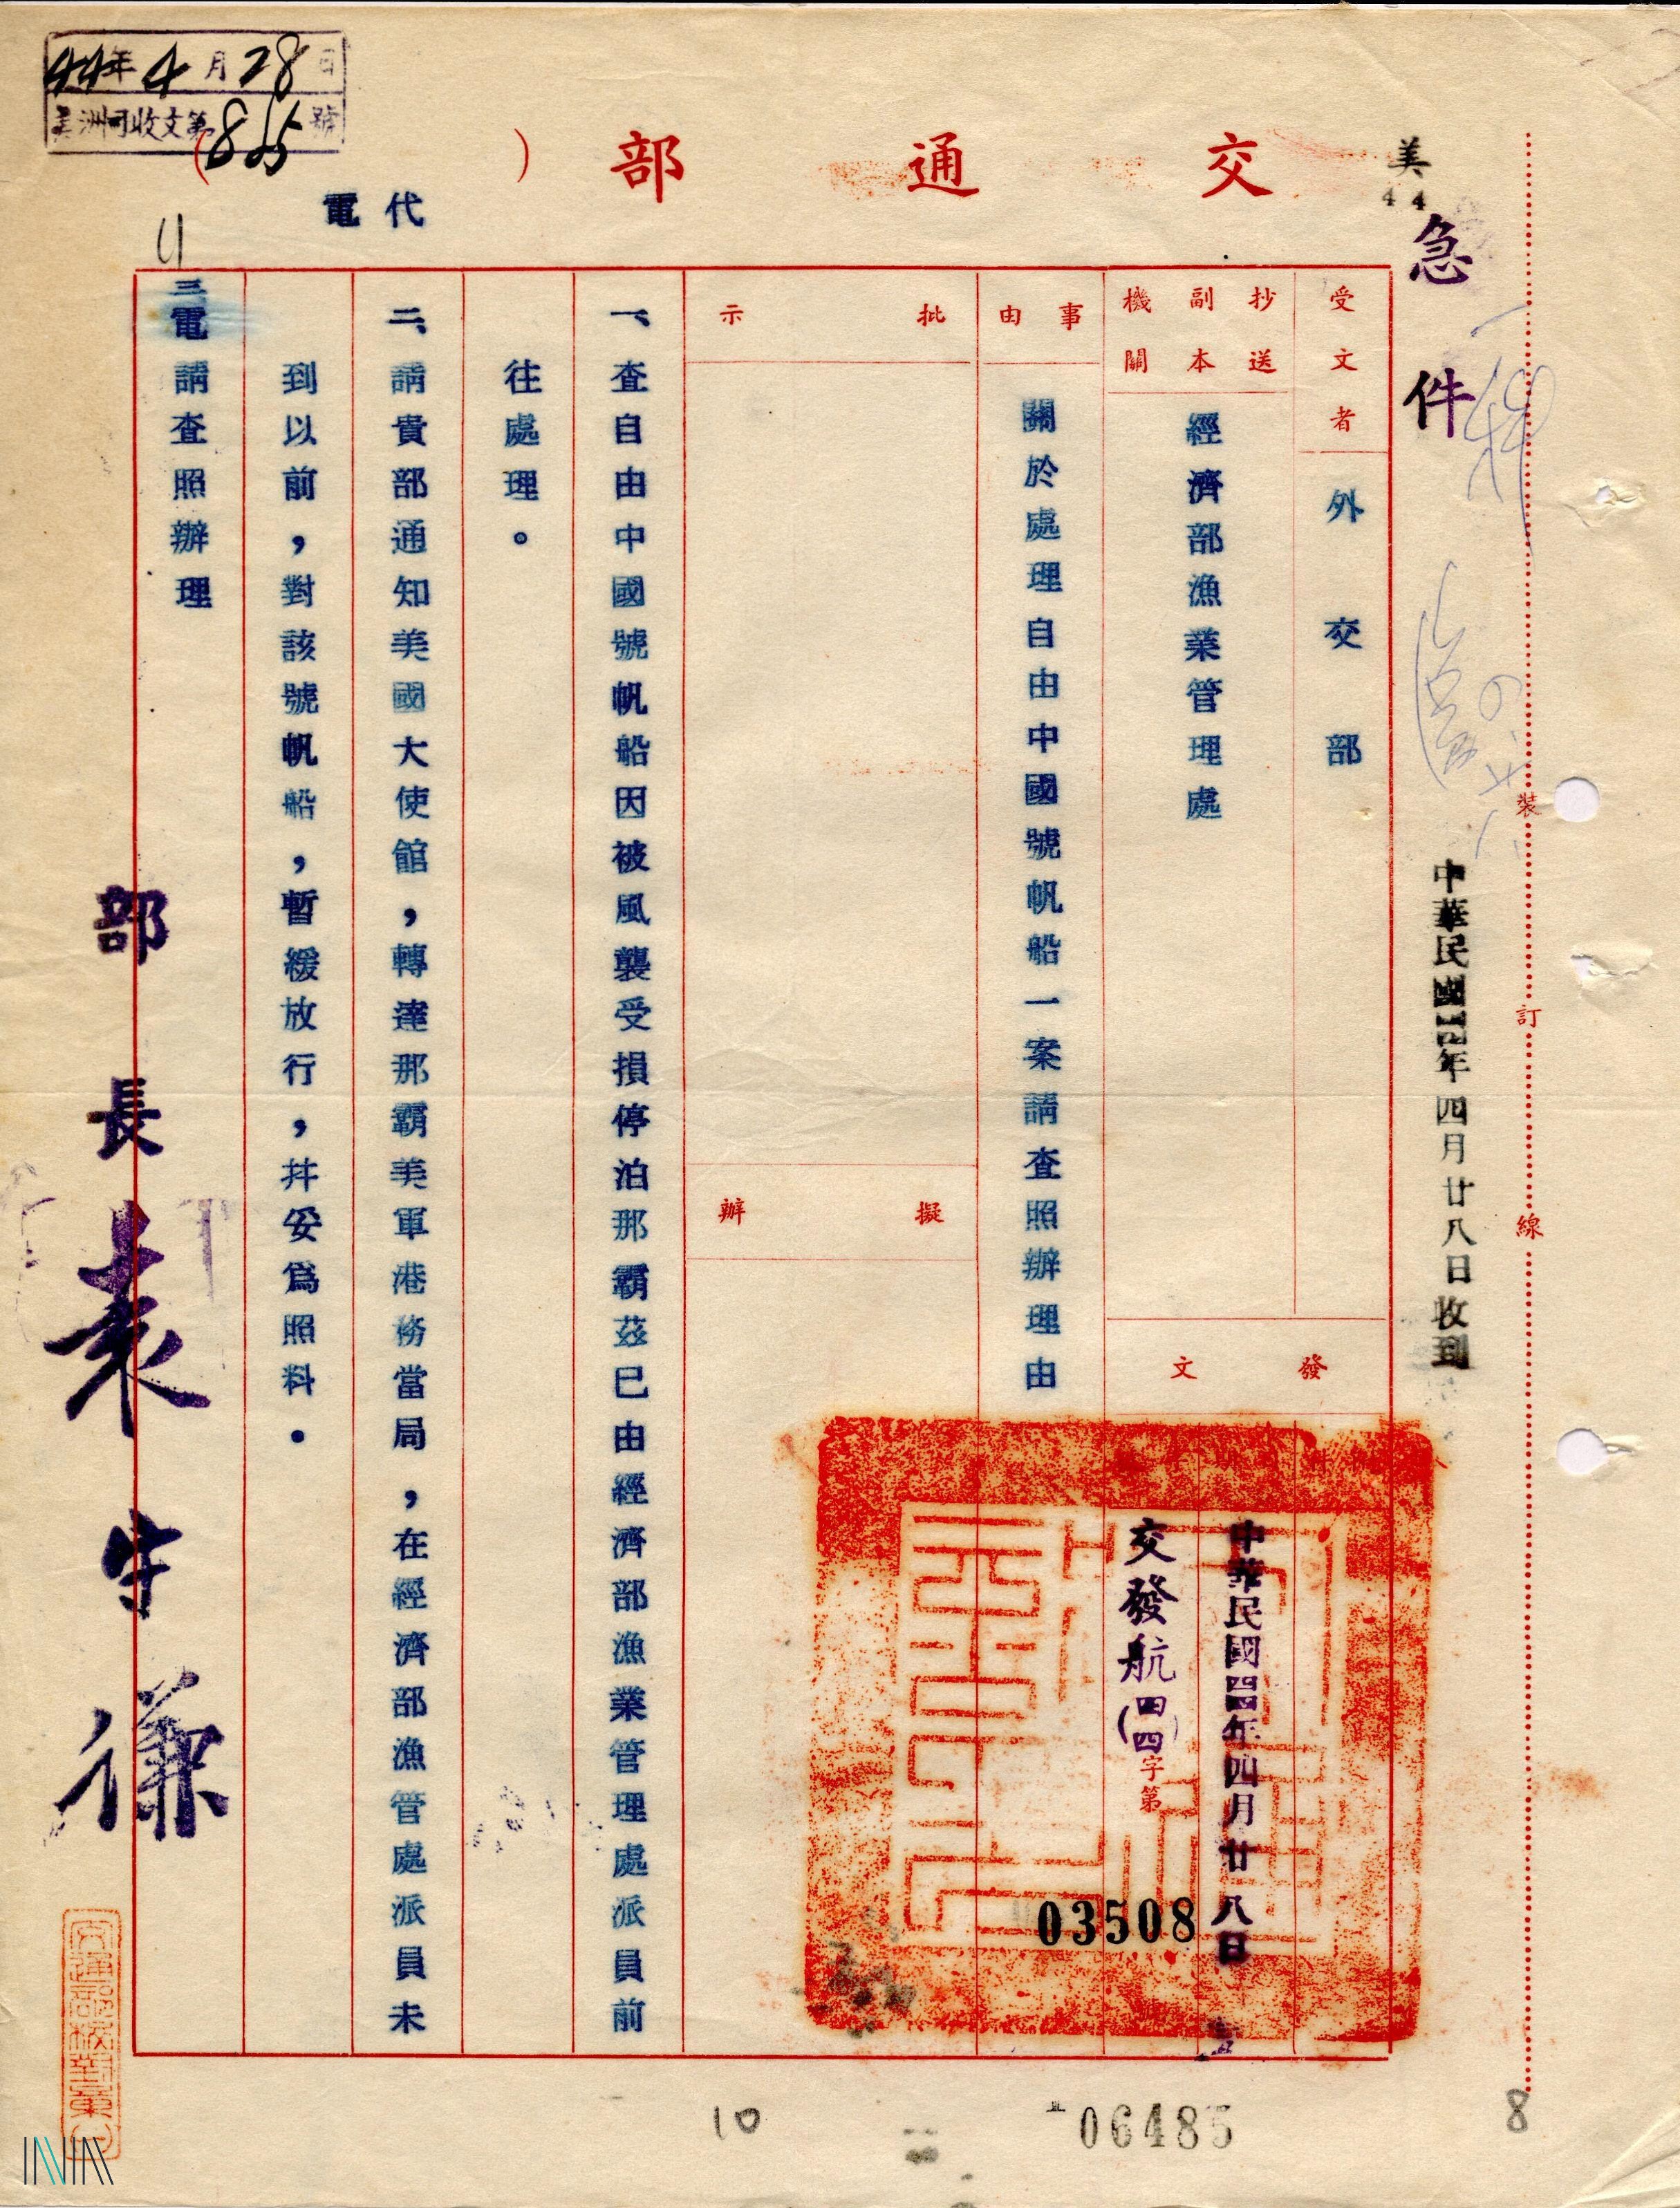 44年4月28日
美洲司收文第865號
交通部
( )
代電
美
44
急件
受文者
外交部
抄送副本機關
經濟部漁業管理處
事由
關於處理自由中國號帆船一案請查照辦理由
批示
擬辦
發文
中華民國四四年四月廿八日
交發航(四四)字第
03508
一、查自由中國號帆船因被風襲受損停泊那霸茲已由經濟部漁業管理處派員前
往處理。
二、請貴部通知美國大使館,轉達那霸美軍港務當局,在經濟部漁管處派員未
到以前,對該號帆船,暫緩放行,并妥為照料。
三電請查照辦理
部長袁守謙
中華民國四四年四月廿八日收到
裝訂線
交通部校對章
10
06485
8